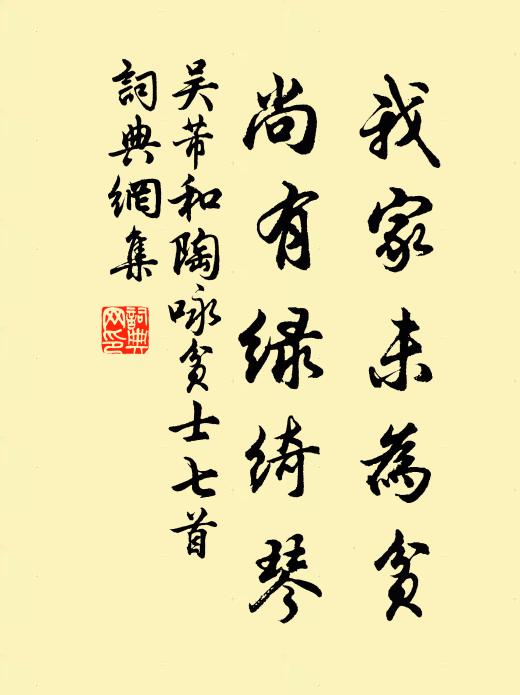 我家未為貧
尚有绿綺琴
吴芾和陶咏贫士七首
詞典網集
詞典網印